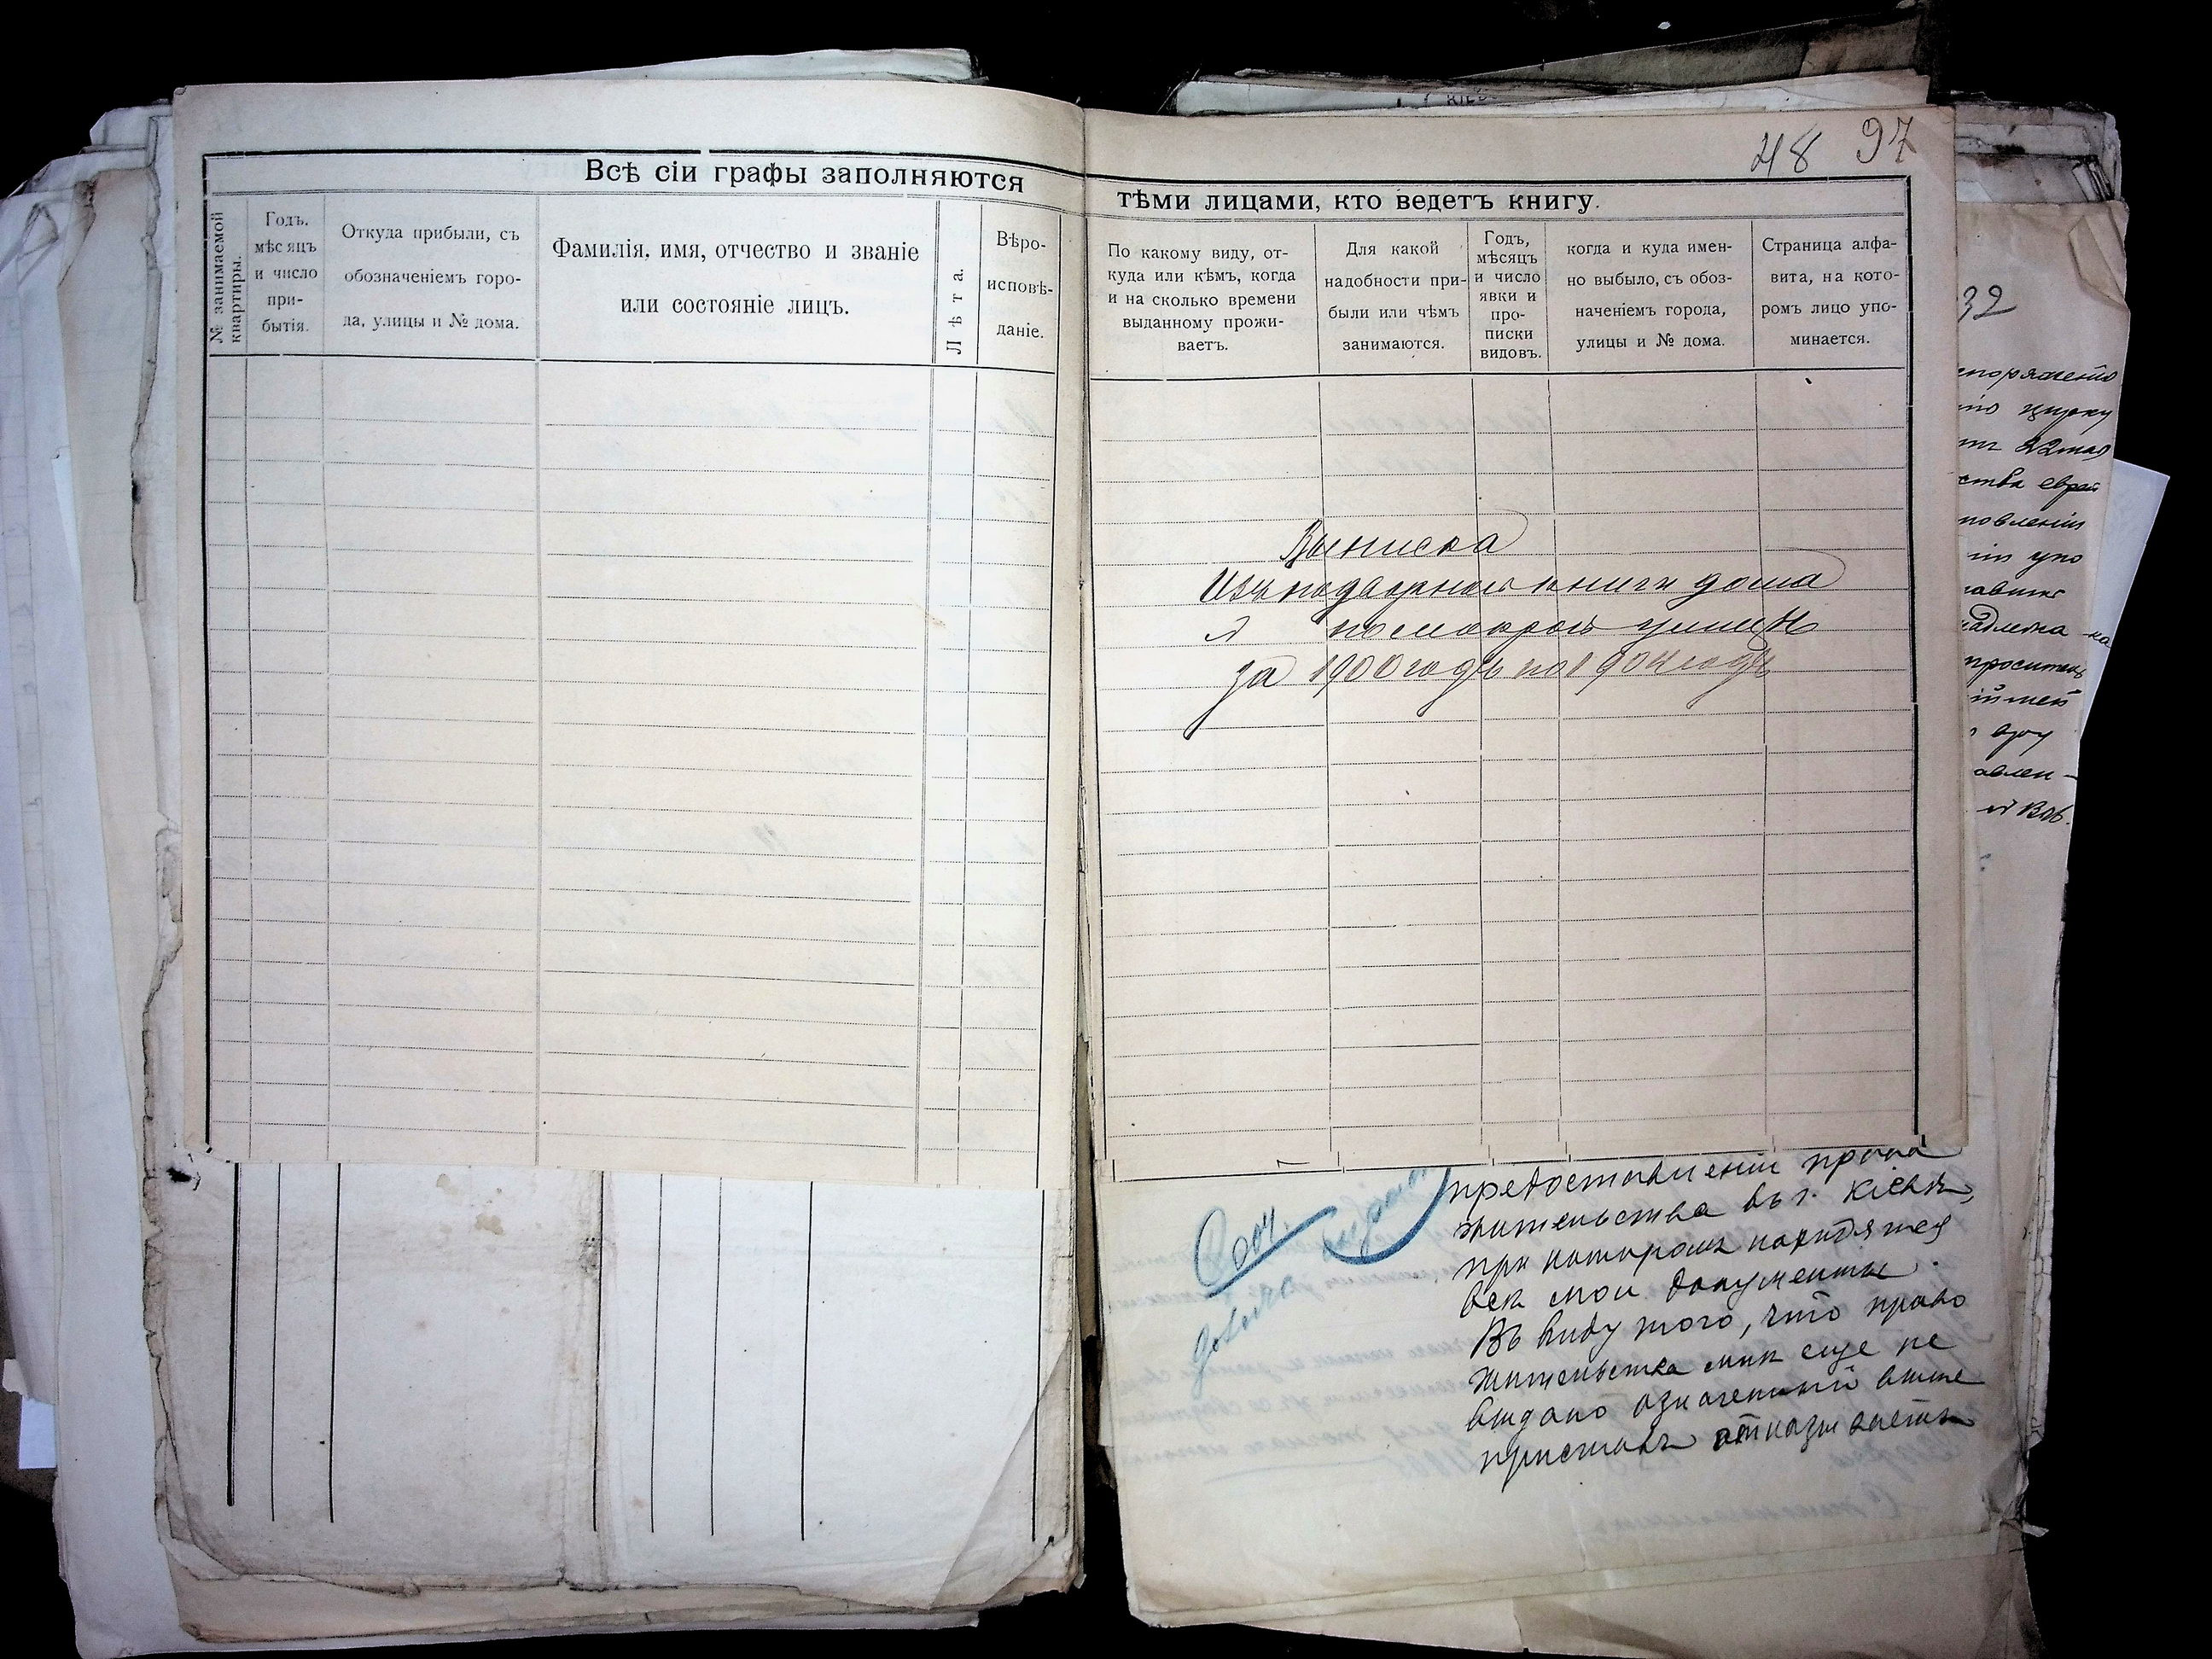 48 97
Всѣ сіи графы заполняются
тѣми лицами, кто ведетъ книгу.
№ занимаемой
квартиры.
Годъ.
мѣсяцъ
и число
при-
бытія.
Откуда прибыли, съ
обозначеніемъ горо-
да, улицы и № дома.
Фамилія, имя, отчество и званіе
или состояніе лицъ.
Лѣта.
Вѣро-
исповѣ-
даніе.
По какому виду, от-
куда или кѣмъ, когда
и на сколько времени
выданному прожи-
ваетъ.
Для какой
надобности при-
были или чѣмъ
занимаются.
Годъ,
мѣсяцъ
и число
явки и
про-
писки
видовъ.
когда и куда имен-
но выбыло, съ обоз-
наченіемъ города,
улицы и № дома.
Страница алфа-
вита, на кото-
ромъ лицо упо-
минается.
Выписка
Изъ подворной книги дома
по мокрой улицѣ
за 1900 годъ по 1904 годъ
предоставленіи права
жительства въ г. Кіевѣ,
при которомъ находятся
всѣ мои документы.
Въ виду того, что право
жительства мнѣ еще не
выдано означенный выше
приставъ отказывается
32
22 мая
ства евре
новленіи
упо